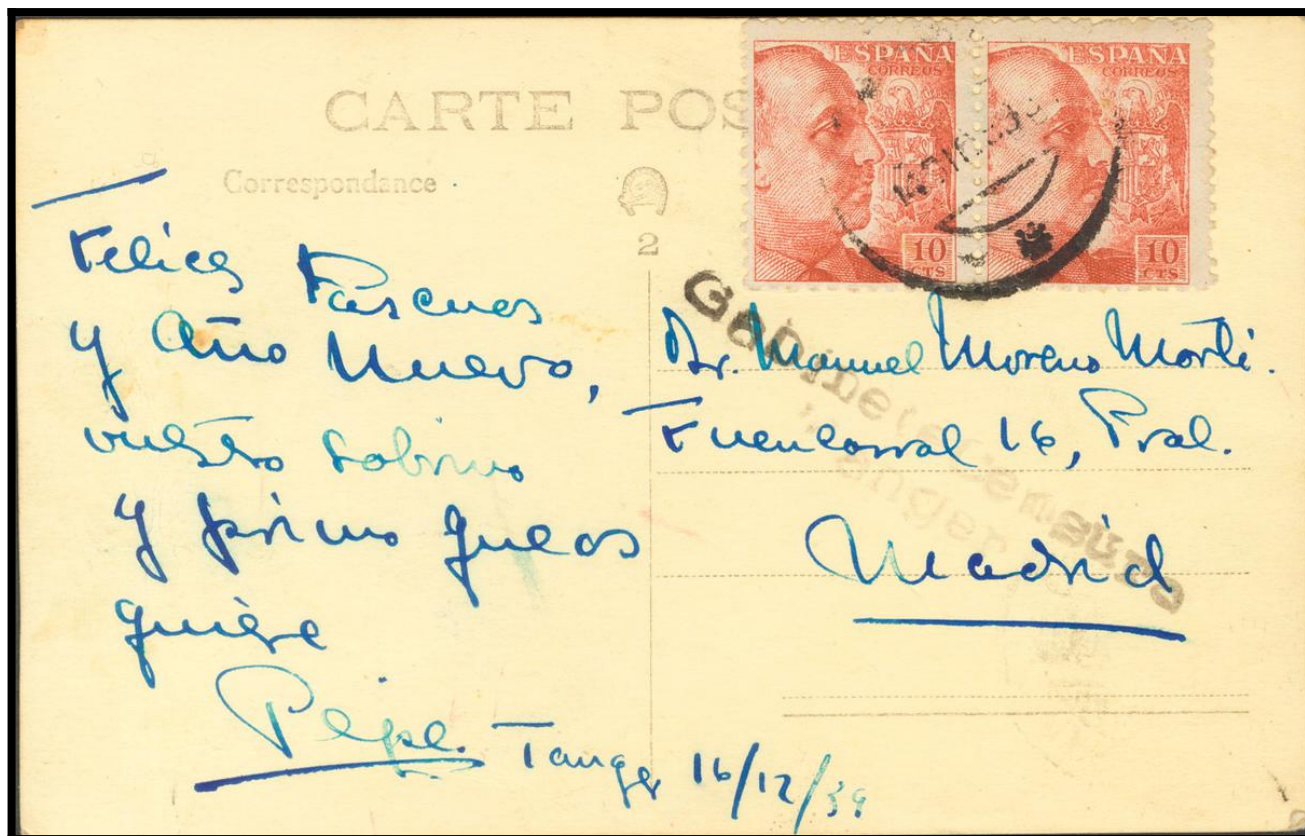 CARTE POS
Correspondance
2
ESPAÑA
CORREOS
10
CTS
ESPAÑA
CORREOS
10
CTS
Felices Pascuas
y Año Nuevo,
vuestro sobrino
y primo que os
quiere
Pepe.
Tanger 16/12/39
Gabinete de Censura
Tanger
Dr. Manuel Moreno Marti.
Fuencarral 16, Pral.
Madrid